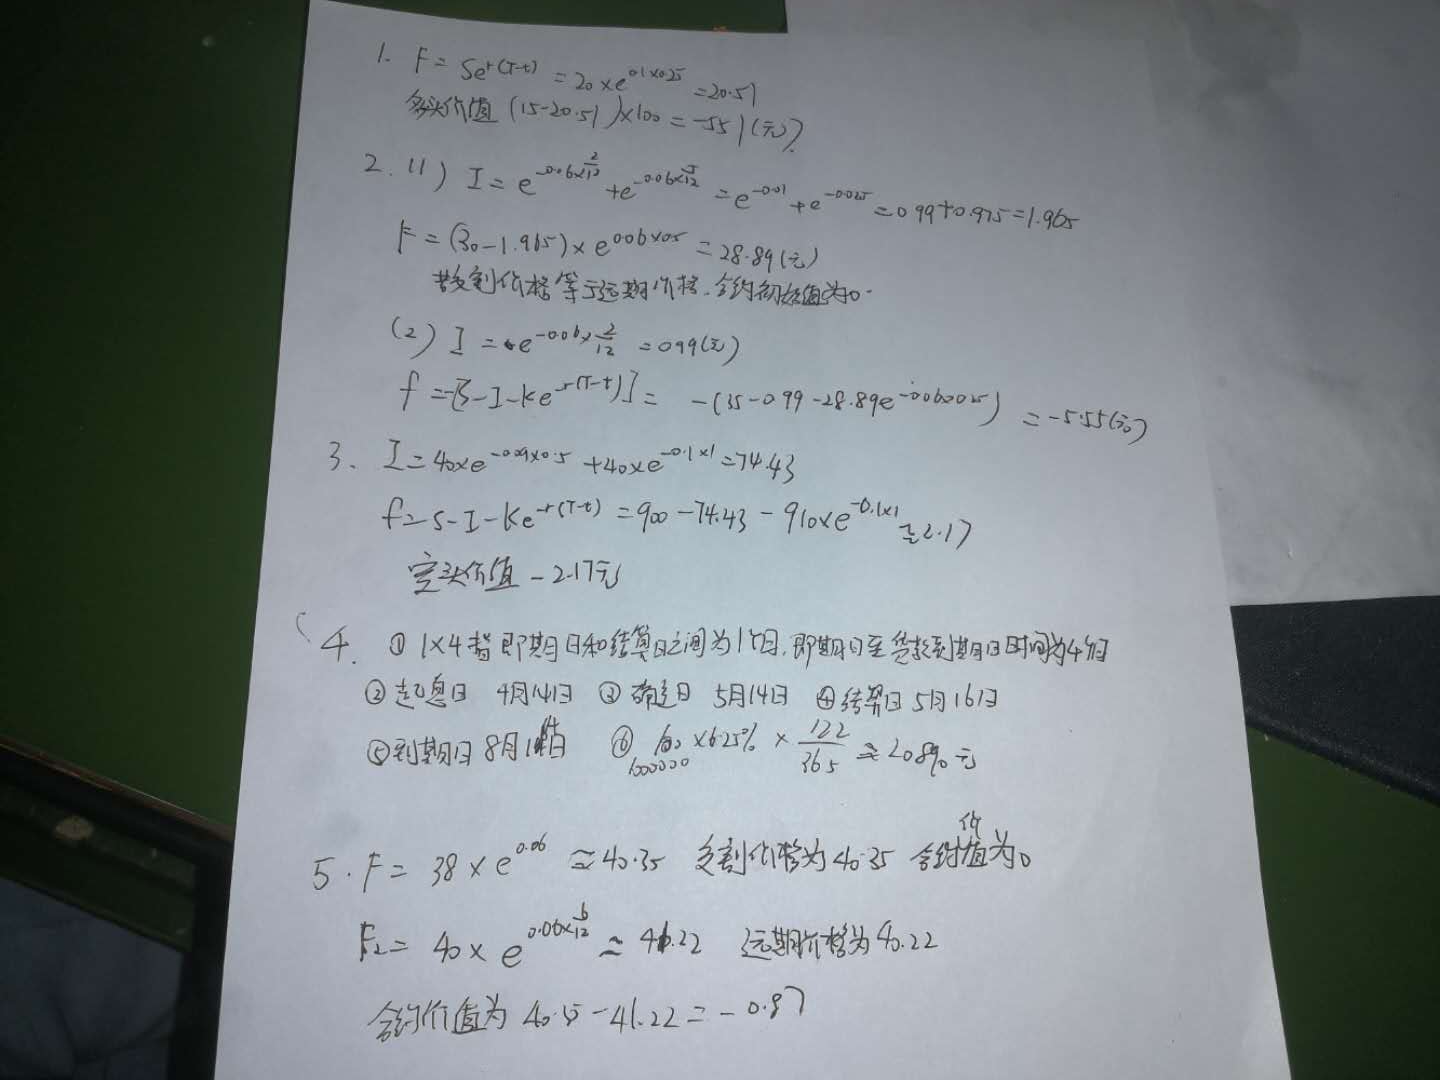 1. F = Se^{r(T-t)} = 20×e^{0.1×0.25} = 20.51
多头价值 (15-20.51)×100 = -551(元).
2. (1) I = e^{-0.06×\frac{2}{12}} + e^{-0.06×\frac{5}{12}} = e^{-0.01} + e^{-0.025} = 0.99+0.975=1.965
F = (30-1.965)×e^{0.06×0.5} = 28.89(元)
交割价格等于远期价格.合约初始值为0.
(2) I = e^{-0.06×\frac{2}{12}} = 0.99(元)
f = -[S-I-Ke^{-r(T-t)}] = -(35-0.99-28.89e^{-0.06×0.25}) = -5.55(元)
3. I = 40×e^{-0.09×0.5} + 40×e^{-0.1×1} = 74.43
f = S-I-Ke^{-r(T-t)} = 900-74.43-910×e^{-0.1×1} = 2.17
空头价值 -2.17元
4. ① 1×4指即期日和结算日之间为1个月.即期日至贷款到期日时间为4个月
②起息日 4月14日 ③确定日 5月14日 ④结算日 5月16日
⑤到期日 8月14日 ⑥ 1000000 ×6.25% × \frac{122}{365} ≈ 20890元
5. F = 38×e^{0.06} ≈ 40.35 交割价格为40.35 合约价值为0
F₂ = 40×e^{0.06×\frac{6}{12}} ≈ 41.22 远期价格为40.22
合约价值为 40.35-41.22 = -0.87